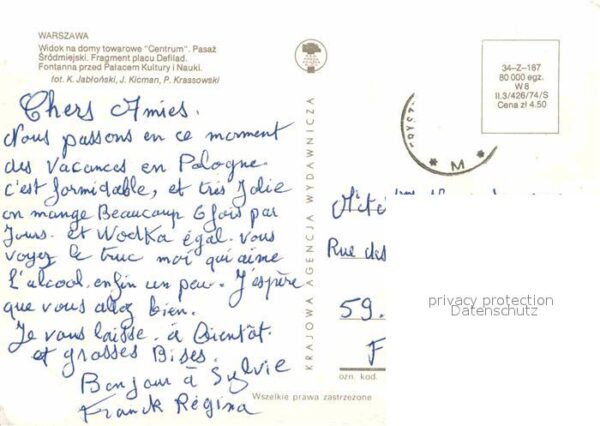 WARSZAWA
Widok na domy towarowe "Centrum". Pasaż
Śródmiejski. Fragment placu Defilad.
Fontanna przed Pałacem Kultury i Nauki.
fot. K. Jabłoński, J. Kicman, P. Krassowski
Chers Amies.
Nous passons en ce moment
des Vacances en Pologne.
c'est formidable, et très Jolie
on mange Beaucoup 6 fois par
Jours. et Wodka égal. vous
voyez le truc moi qui aime
l'alcool. enfin un peu. J'espère
que vous allez bien.
Je vous laisse. à Bientôt.
et grosses Bises.
Bonjour à Sylvie
Franck Régina
KRAJOWA AGENCJA WYDAWNICZA
34-Z-187
80 000 egz.
W 8
II.3/426/74/S
Cena zł 4.50
* M *
Rue des
59.
F
privacy protection
Datenschutz
ozn. kod.
Wszelkie prawa zastrzeżone